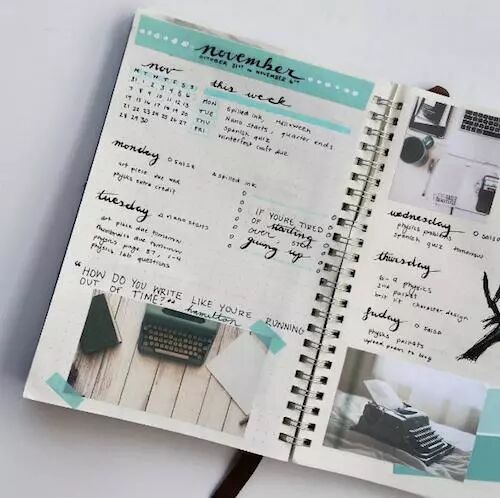 november
OCTOBER 31ST TO NOVEMBER 6TH
nov
M T W T F S S
31 1 2 3 4 5 6
7 8 9 10 11 12 13
14 15 16 17 18 19 20
21 22 23 24 25 26 27
28 29 30
this week
MON Spilled ink, Halloween
TUE Nano starts, quarter ends
THU Spanish quiz
FRI winterfest craft due
monday
salsa
spilled ink
art piece due wed
physics extra credit
tuesday
nano starts
art piece due tomorrow
thumbnails due tomorrow
physics page 87, 1-4
physics lab questions
IF YOU'RE TIRED
OF starting
over, STOP
giving up
"HOW DO YOU WRITE LIKE YOU'RE RUNNING
OUT OF TIME?"
hamilton
wednesday
salsa
physics problems
Spanish quiz tomorrow
thursday
physics
2nd packet
brit lit character design
friday
salsa
physics packets
upload poem to blog